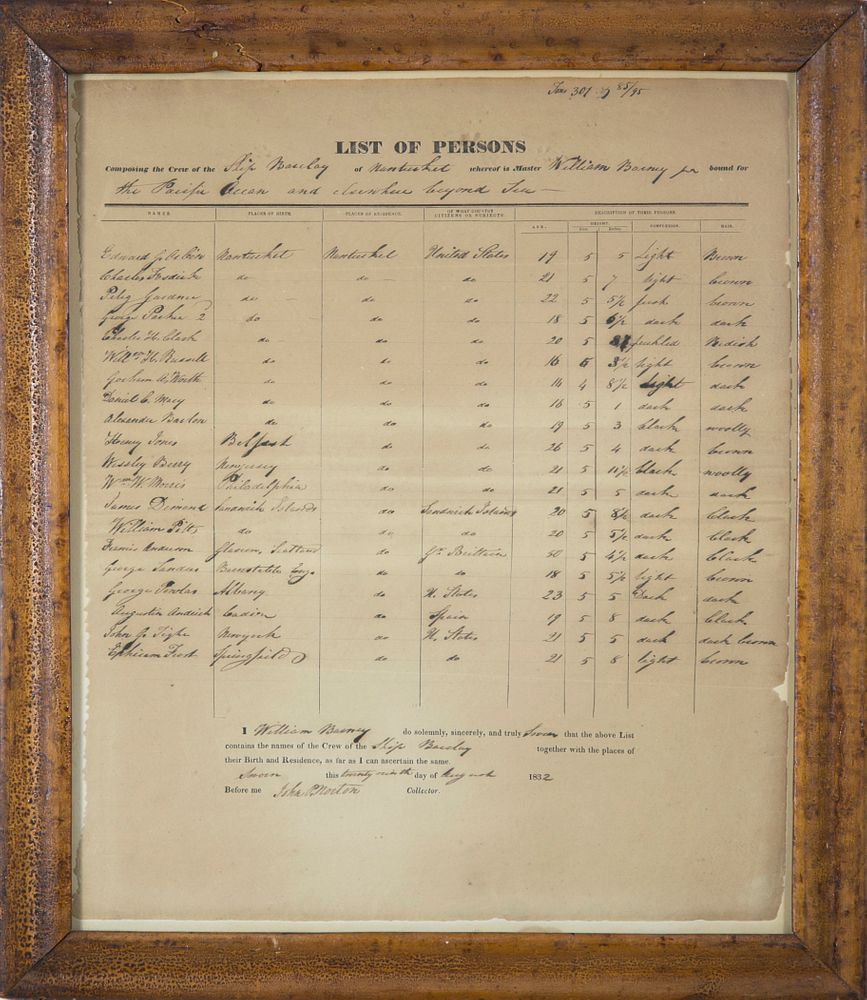 Tons 301 85/95
LIST OF PERSONS
Composing the Crew of the Ship Barclay of Nantucket whereof is Master William Barney jr bound for
the Pacific Ocean and elsewhere beyond Sea —
NAMES. PLACES OF BIRTH. PLACES OF RESIDENCE. OF WHAT COUNTRY CITIZENS OR SUBJECTS. DESCRIPTION OF THEIR PERSONS.
AGE. HEIGHT. COMPLEXION. HAIR.
Feet. Inches.
Edward Nantucket Nantucket United States 19 5 5 Light Brown
Charles do do do 21 5 7 light brown
Peleg Gardner do do do 22 5 5½ fresh brown
George 2 do do do 18 5 dark dark
Charles H. Clark do do do 20 5 freckled
Will<sup>m</sup> H. Russell do do do 16 5 3½ light brown
Gorham A. Worth do do do 14 4 8½ Light dark
Daniel C. Macy do do do 16 5 1 dark dark
Alexander do do do 19 5 3 black woolly
Henry Jones Belfast do do 26 5 4 dark brown
Wessley Berry Newjersey do do 21 5 11½ black woolly
W<sup>m</sup> W. Morris Philadelphia do do 21 5 5 dark dark
James Dimond Sandwich Islands do Sandwich Islands 20 5 8½ dark black
William Pitt do do do 20 5 5½ dark black
Francis Anderson do G<sup>t</sup> Brittain 50 5 4½ dark black
George Sanders do do 18 5 5½ light brown
George Albany do U. States 23 5 5 Dark dark
Augustin do Spain 19 5 8 dark black
John G. Tighe Newyork do U. States 21 5 5 dark dark brown
Ephraim Frost Springfield do do 21 5 8 light brown
I William Barney do solemnly, sincerely, and truly Swear that the above List
contains the names of the Crew of the Ship Barclay together with the places of
their Birth and Residence, as far as I can ascertain the same.
Sworn this twenty ninth day of August 1832
Before me Collector.